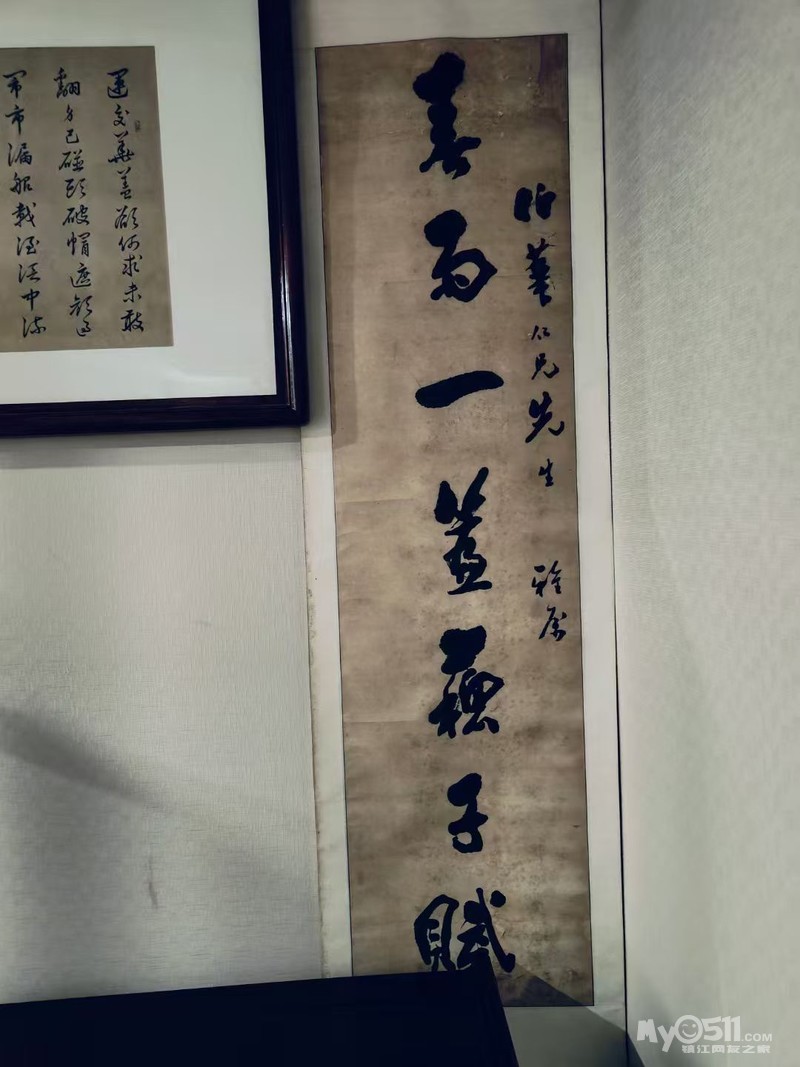 運交華蓋欲何求未敢
翻身已碰頭破帽遮顏過
鬧市漏船載酒泛中流
伯華仁兄先生 雅屬
雨一蘇子賦
My0511.COM
镇江网友之家